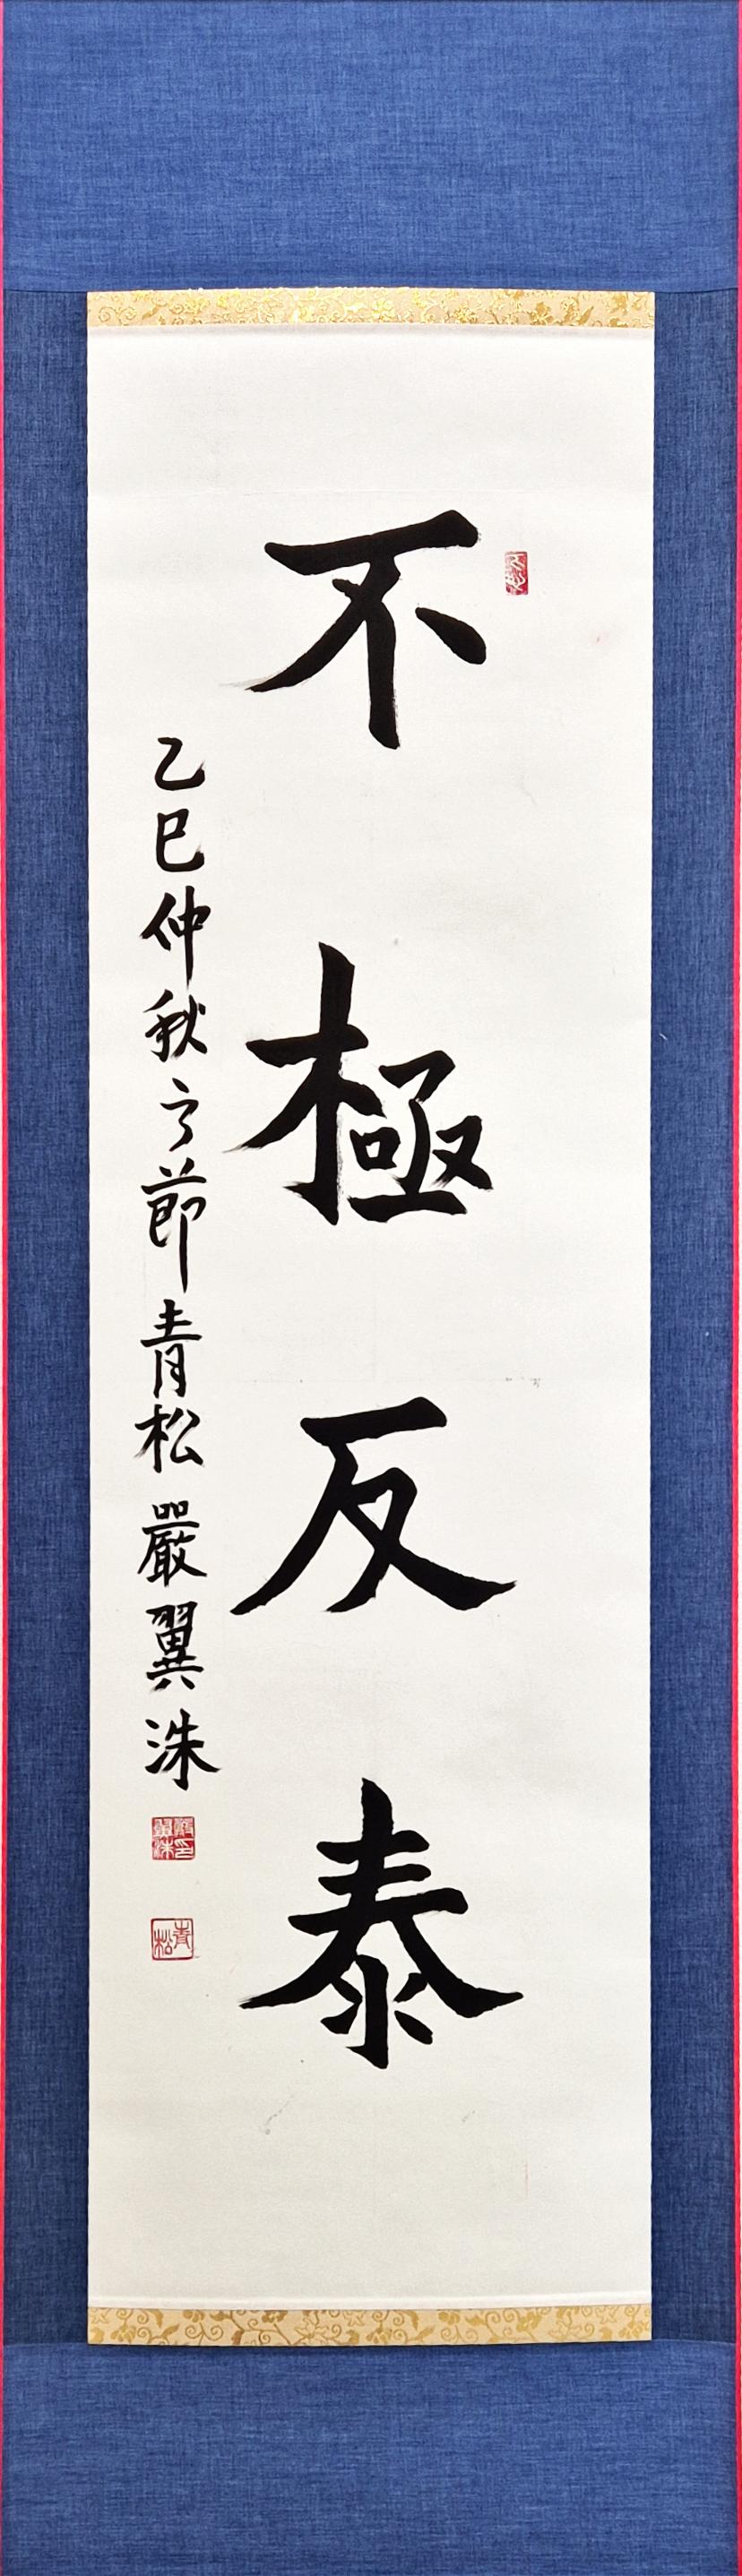 不極反泰
乙巳仲秋之節青松嚴翼洙
嚴印翼洙
青松